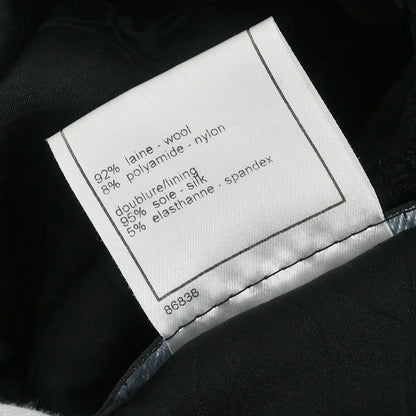 92% laine - wool
8% polyamide - nylon
doublure/lining
95% soie - silk
5% elasthanne - spandex
86838